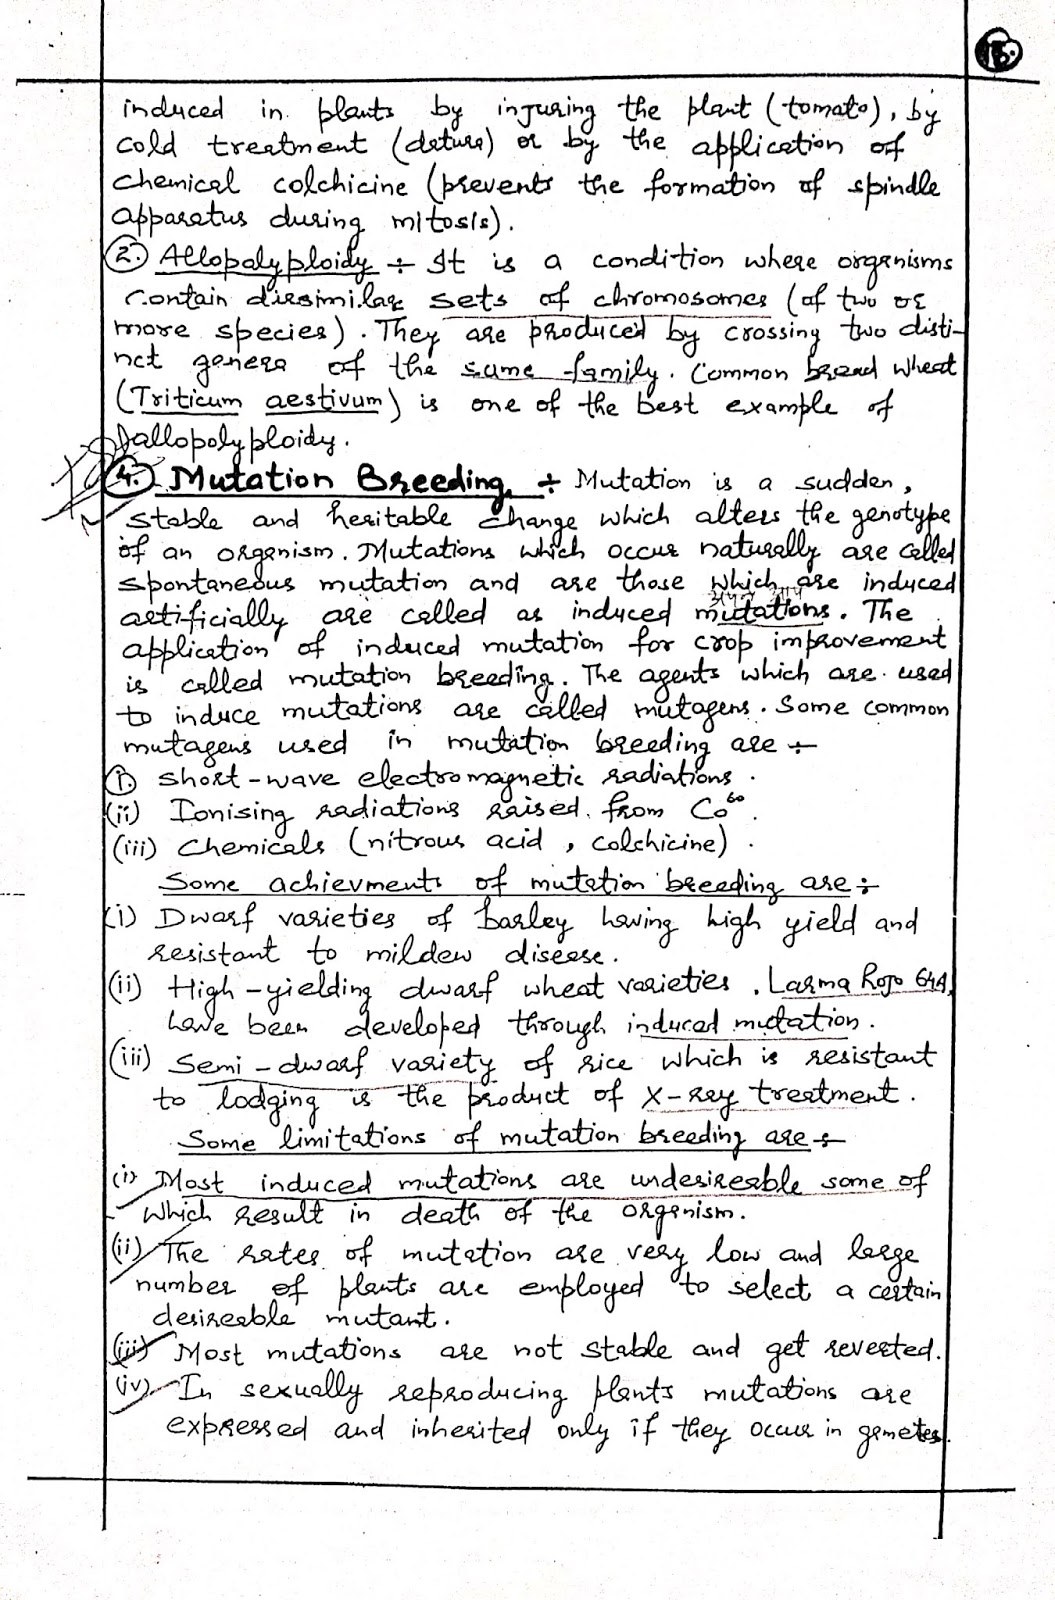 15.
induced in plants by injuring the plant (tomato), by
cold treatment (datura) or by the application of
chemical colchicine (prevents the formation of spindle
apparatus during mitosis).
2. Allopolyploidy ÷ It is a condition where organisms
contain dissimilar sets of chromosomes (of two or
more species). They are produced by crossing two disti-
nct genera of the same family. Common bread wheat
(Triticum aestivum) is one of the best example of
allopolyploidy.
4. Mutation Breeding ÷ Mutation is a sudden,
stable and heritable change which alters the genotype
of an organism. Mutations which occur naturally are called
spontaneous mutation and are those which are induced
artificially are called as induced mutations. The
application of induced mutation for crop improvement
is called mutation breeding. The agents which are used
to induce mutations are called mutagens. Some common
mutagens used in mutation breeding are ÷
i. Short-wave electromagnetic radiations.
(ii) Ionising radiations raised from Co⁶⁰.
(iii) Chemicals (nitrous acid, colchicine).
Some achievments of mutation breeding are ÷
(i) Dwarf varieties of barley having high yield and
resistant to mildew disease.
(ii) High-yielding dwarf wheat varieties, Larma Rojo 64A,
have been developed through induced mutation.
(iii) Semi-dwarf variety of rice which is resistant
to lodging is the product of X-ray treatment.
Some limitations of mutation breeding are ÷
(i) Most induced mutations are undesireable some of
which result in death of the organism.
(ii) The rates of mutation are very low and large
number of plants are employed to select a certain
desireable mutant.
(iii) Most mutations are not stable and get reverted.
(iv) In sexually reproducing plants mutations are
expressed and inherited only if they occur in gametes.